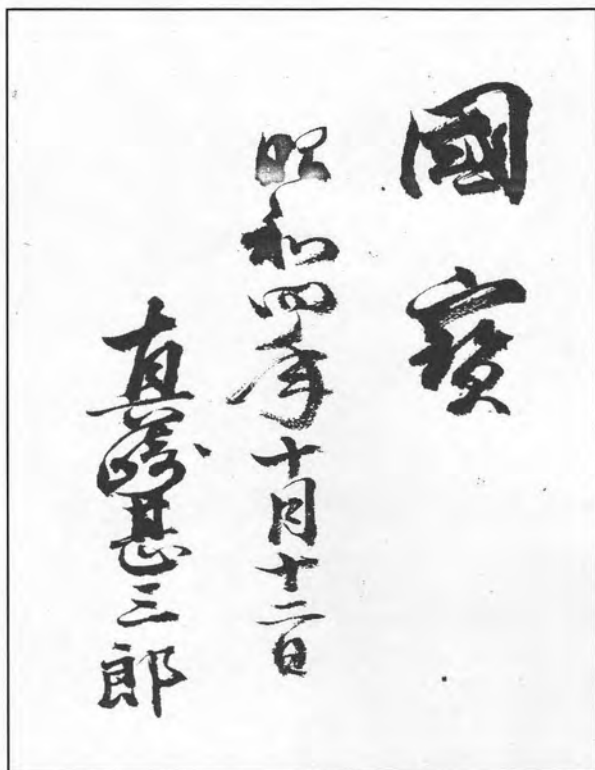 國寳
昭和四年十月十二日
真崎甚三郎